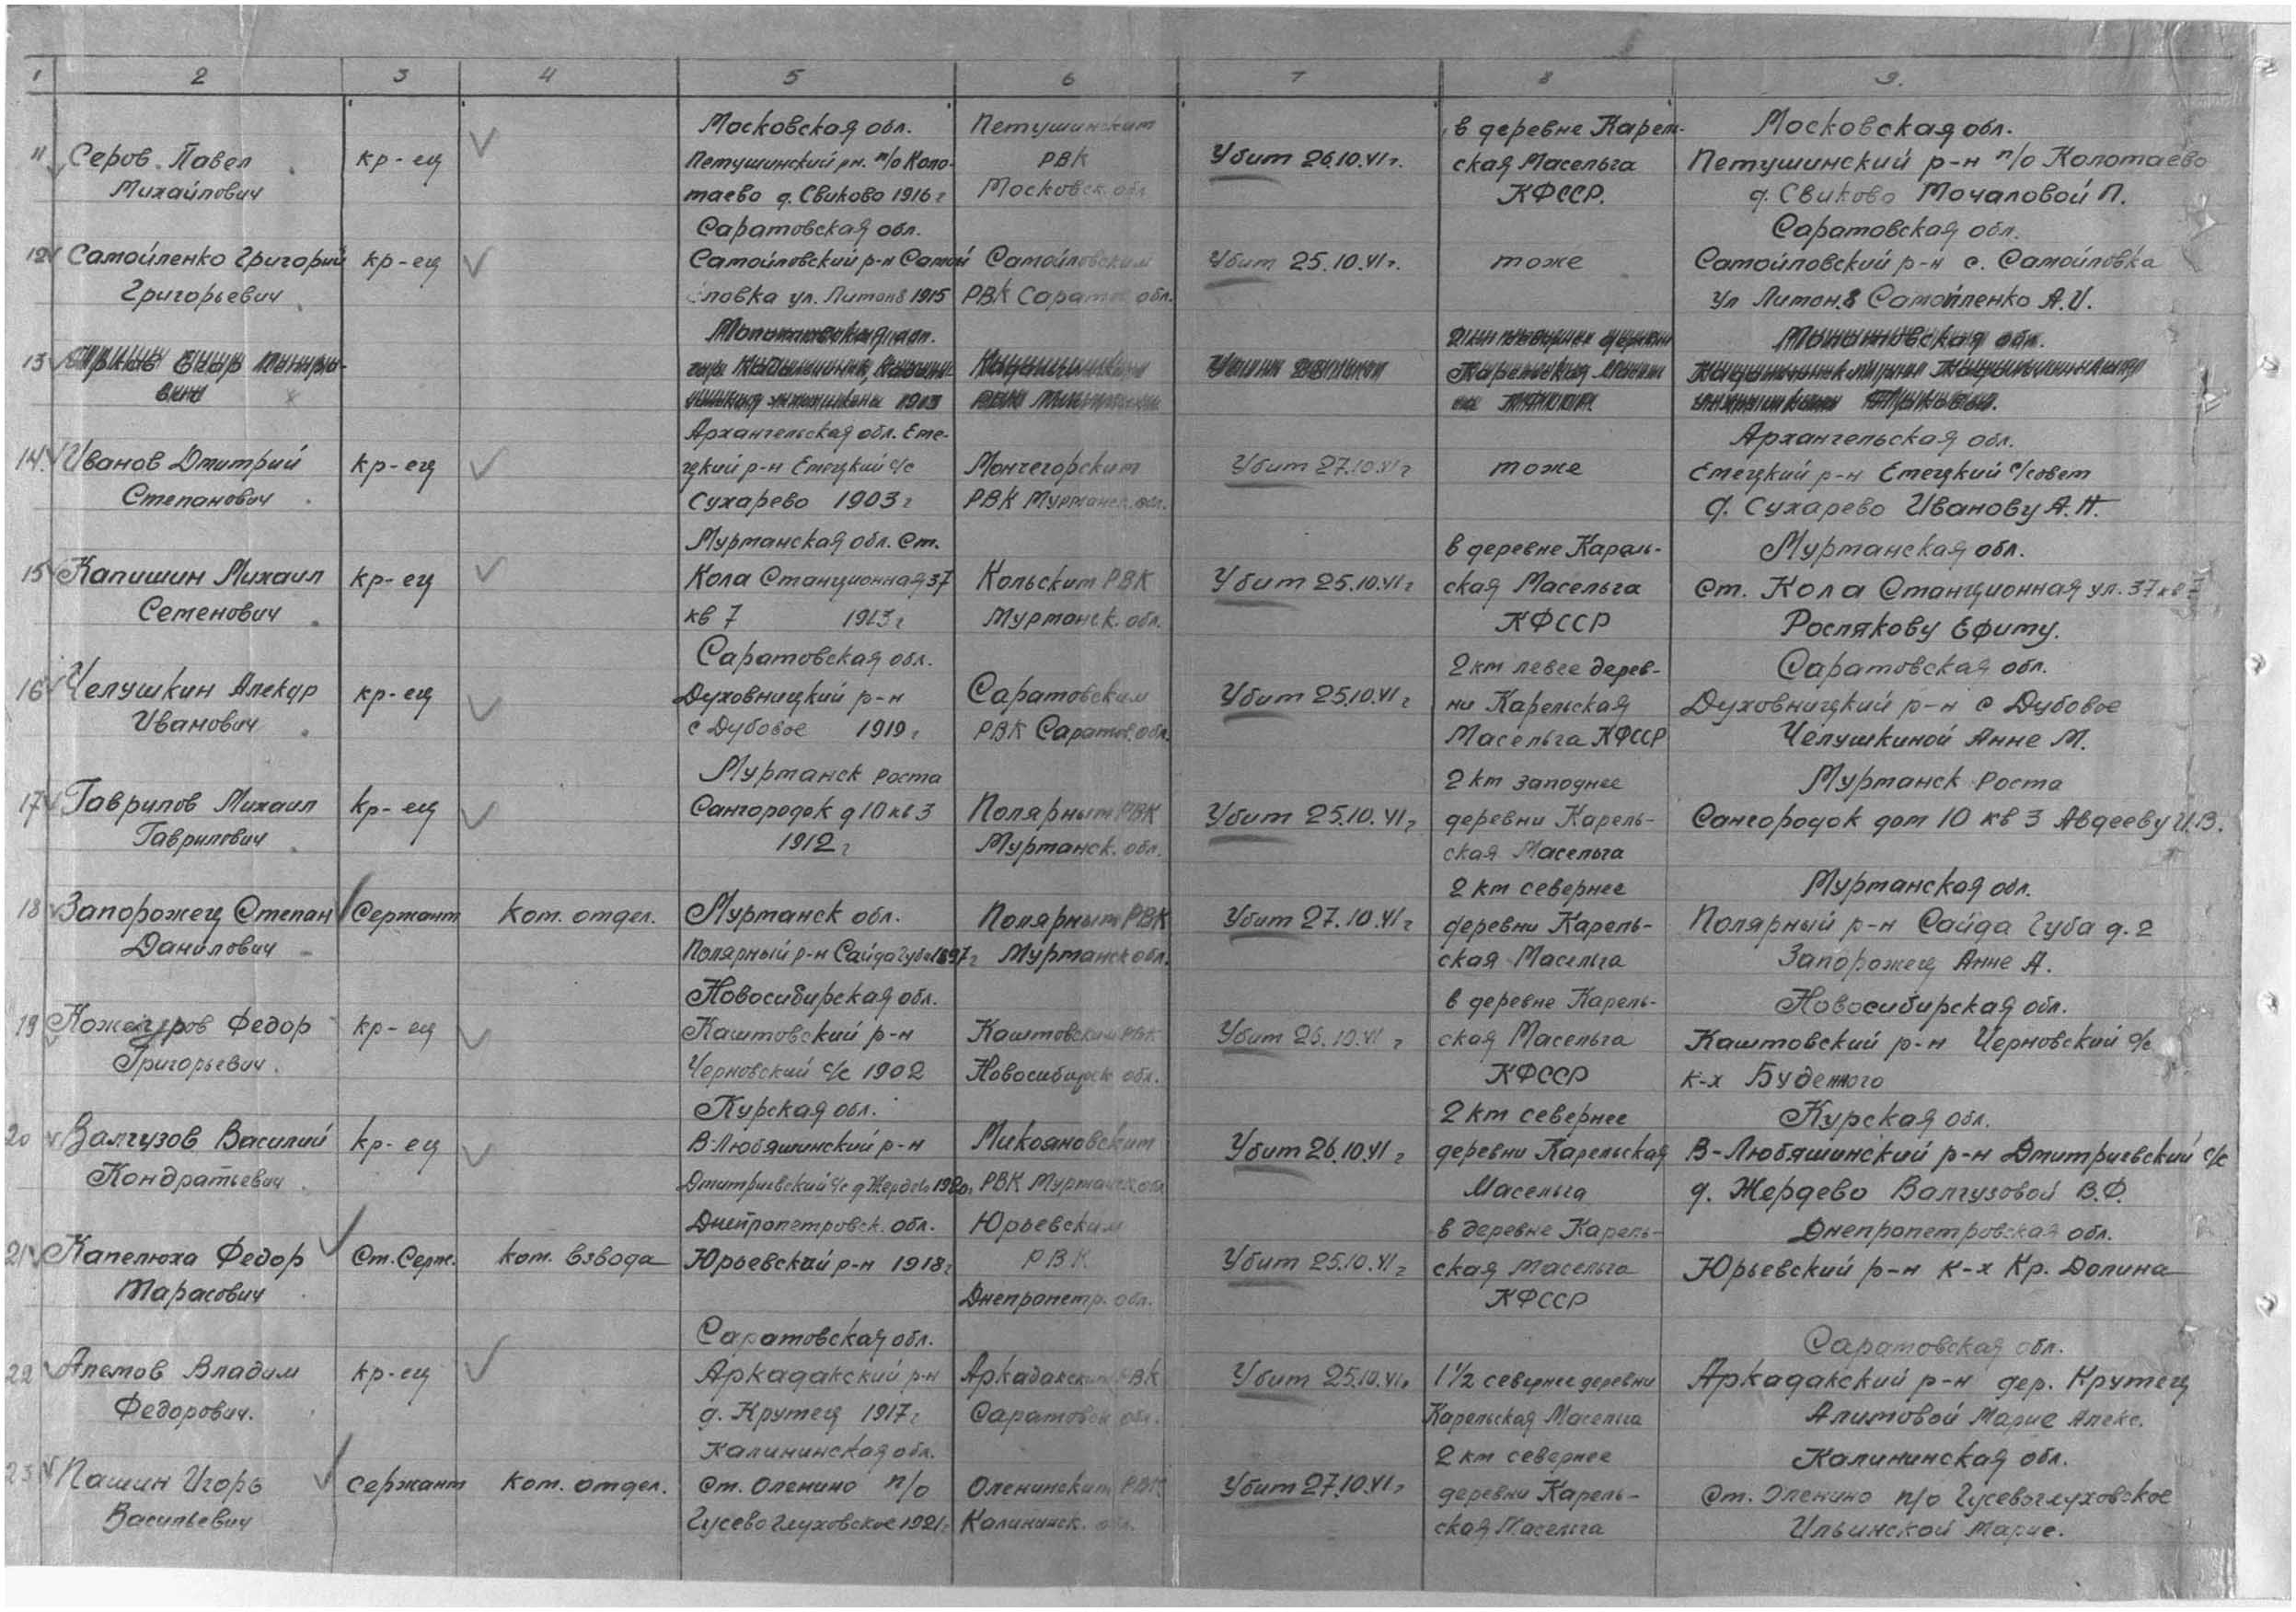 1 2 3 4 5 6 7 8 9.
11 Серов Павел Михайлович
кр-ец
Московская обл.
Петушинский рн. п/о Коло-
таево д. Свиково 1916 г
Петушинским
РВК
Московск. обл
Убит 26.10.41 г.
в деревне Карель-
ская Масельга
КФССР.
Московская обл.
Петушинский р-н п/о Колотаево
д. Свиково Мочаловой П.
12 Самойленко Григорий
Григорьевич
кр-ец
Саратовская обл.
Самойловский р-н Самой
ловка ул. Литов 8 1915
Самойловским
РВК Саратов обл.
Убит 25.10.41 г.
тоже
Саратовская обл.
Самойловский р-н с. Самойловка
Ул Литов. 8 Самойленко А.И.
13
14. Иванов Дмитрий
Степанович
кр-ец
Архангельская обл. Еме-
цкий р-н Емецкий с/с
Сухарево 1903 г
Мончегорским
РВК Мурманск. обл.
Убит 27.10.41 г
тоже
Архангельская обл.
Емецкий р-н Емецкий с/совет
д. Сухарево Иванову А.Н.
15 Капишин Михаил
Семенович
кр-ец
Мурманская обл. Ст.
Кола Станционная 37
кв 7 1913 г
Кольским РВК
Мурманск. обл.
Убит 25.10.41 г
в деревне Карель-
ская Масельга
КФССР
Мурманская обл.
Ст. Кола Станционная ул. 37 кв 7
Рослякову Ефиму.
16 Челушкин Алек-др
Иванович
кр-ец
Саратовская обл.
Духовницкий р-н
с Дубовое 1919 г
Саратовским
РВК Саратов. обл.
Убит 25.10.41 г
2 км левее дерев-
ни Карельская
Масельга КФССР
Саратовская обл.
Духовницкий р-н с Дубовое
Челушкиной Анне М.
17 Гаврилов Михаил
Гаврилович
кр-ец
Мурманск Роста
Сангородок д 10 кв 3
1912 г
Полярным РВК
Мурманск. обл.
Убит 25.10.41 г
2 км западнее
деревни Карель-
ская Масельга
Мурманск Роста
Сангородок дом 10 кв 3 Авдееву И.В.
18 Запорожец Степан
Данилович
Сержант
ком. отдел.
Мурманск обл.
Полярный р-н Сайда Губа 1897 г
Полярным РВК
Мурманск обл.
Убит 27.10.41 г
2 км севернее
деревни Карель-
ская Масельга
Мурманская обл.
Полярный р-н Сайда Губа д. 2
Запорожец Анне А.
19 Федор
Григорьевич.
кр-ец
Новосибирская обл.
Каштовский р-н
Черновский с/с 1902
Каштовским РВК
Новосибирск обл.
Убит 26.10.41 г
в деревне Карель-
ская Масельга
КФССР
Новосибирская обл.
Каштовский р-н Черновский с/с
к-х Буденного
20 Валгузов Василий
Кондратьевич
кр-ец
Курская обл.
В-Любяшинский р-н
Дмитриевский с/с д Жердево 1920 г
Микояновским
РВК Мурманск обл
Убит 26.10.41 г
2 км севернее
деревни Карельская
Масельга
Курская обл.
В-Любяшинский р-н Дмитриевский с/с
д. Жердево Валгузовой В.Ф.
21 Капелюха Федор
Тарасович
Ст. Серж.
ком. взвода
Днепропетровск. обл.
Юрьевский р-н 1918 г
Юрьевским
РВК
Днепропетр. обл.
Убит 25.10.41 г
в деревне Карель-
ская Масельга
КФССР
Днепропетровская обл.
Юрьевский р-н к-х Кр. Долина
22 Алемов Владим
Федорович.
кр-ец
Саратовская обл.
Аркадакский р-н
д. Крутец 1917 г
Аркадакским РВК
Саратовск обл.
Убит 25.10.41 г
1 1/2 севернее деревни
Карельская Масельга
Саратовская обл.
Аркадакский р-н дер. Крутец
Алимовой Марие Алекс.
23 Пашин Игорь
Васильевич
Сержант
ком. отдел.
Калининская обл.
ст. Оленино п/о
Гусевоглуховское 1921 г
Оленинским РВК
Калининск. обл.
Убит 27.10.41 г
2 км севернее
деревни Карель-
ская Масельга
Калининская обл.
ст. Оленино п/о Гусевоглуховское
Ильинской Марие.